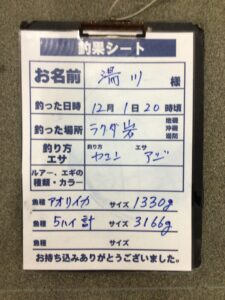 釣果シート
お名前 湯川 様
釣った日時 12月1日20時頃
釣った場所 ラクダ岩 地磯 沖磯 堤防
釣り方 エサ 釣り方 ヤエン エサ アジ
ルアー、エギの種類・カラー
魚種 アオリイカ サイズ 1330g
魚種 5ハイ 計 サイズ 3166g
魚種 サイズ
お持ち込みありがとうございました。